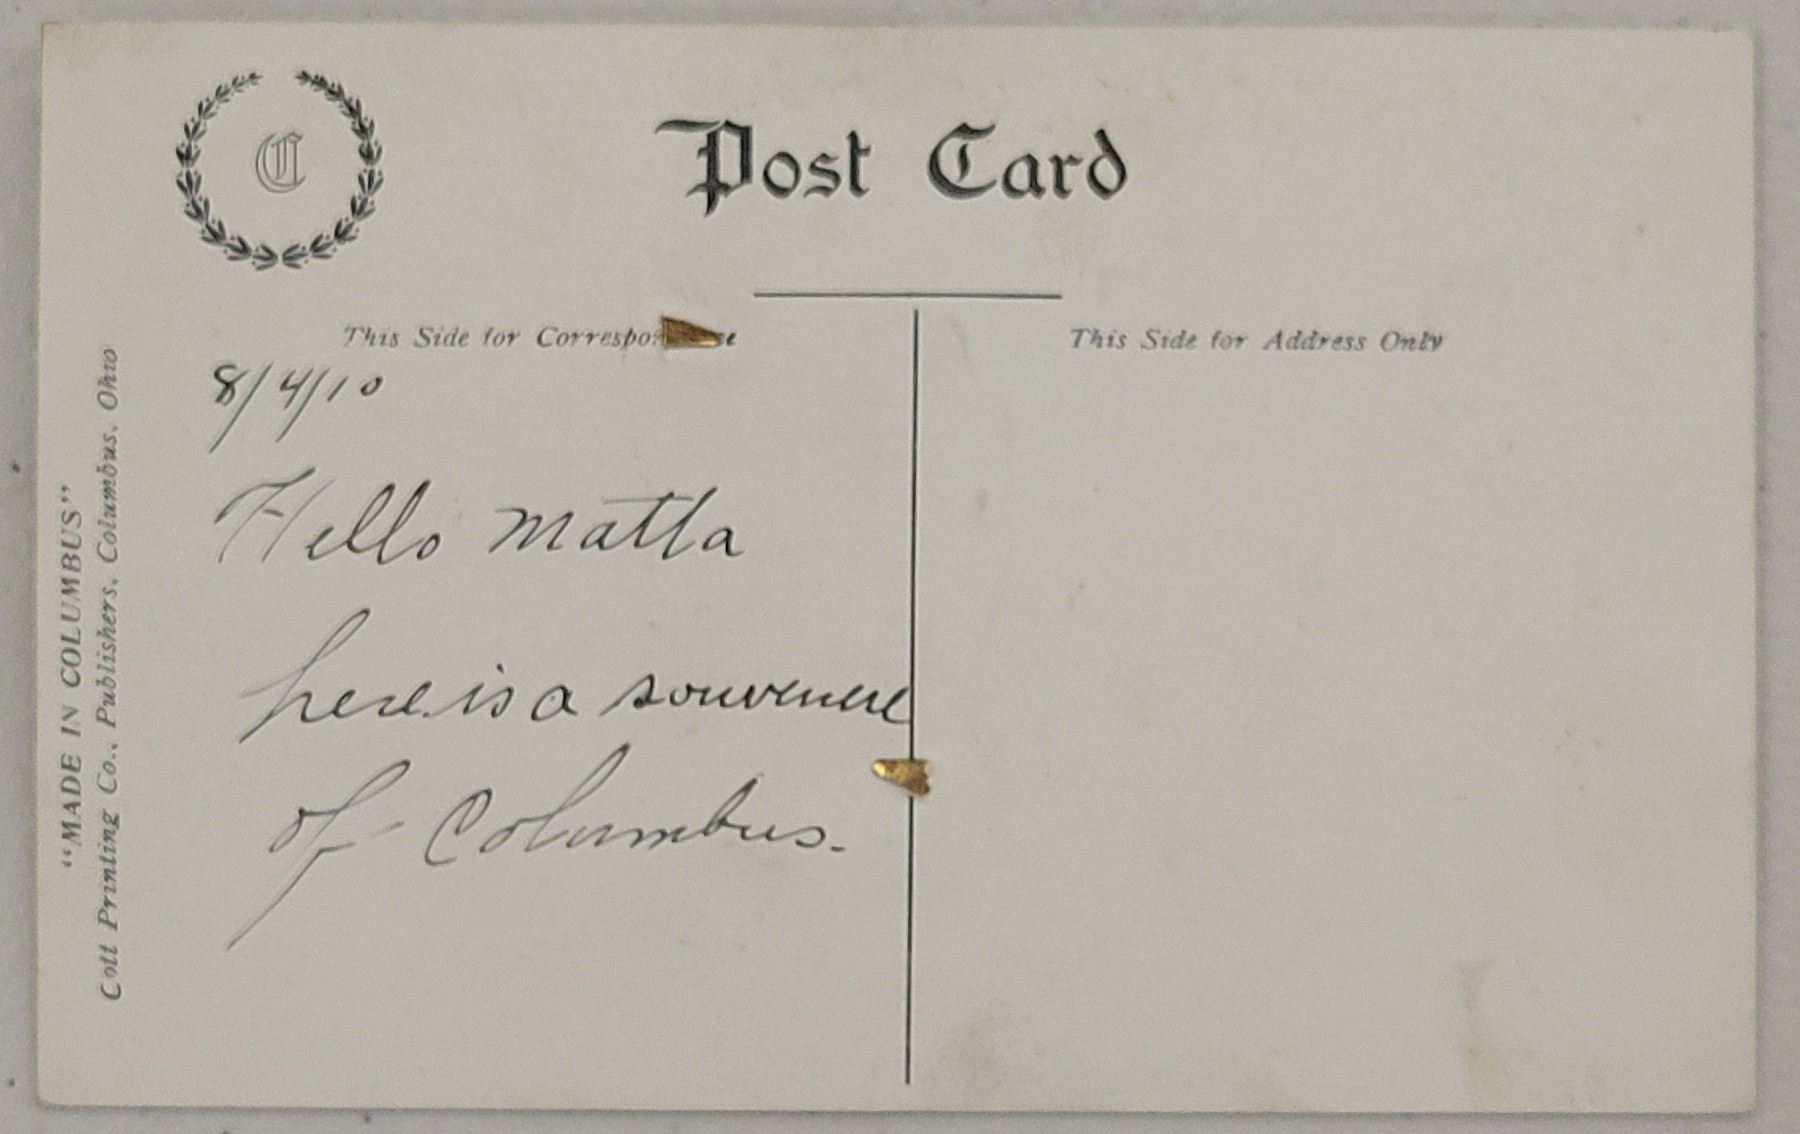 C
Post Card
This Side for Correspo e
This Side for Address Only
8/4/10
Hello Matta
here is a souvenere
of Columbus.
"MADE IN COLUMBUS"
Cott Printing Co., Publishers, Columbus, Ohio